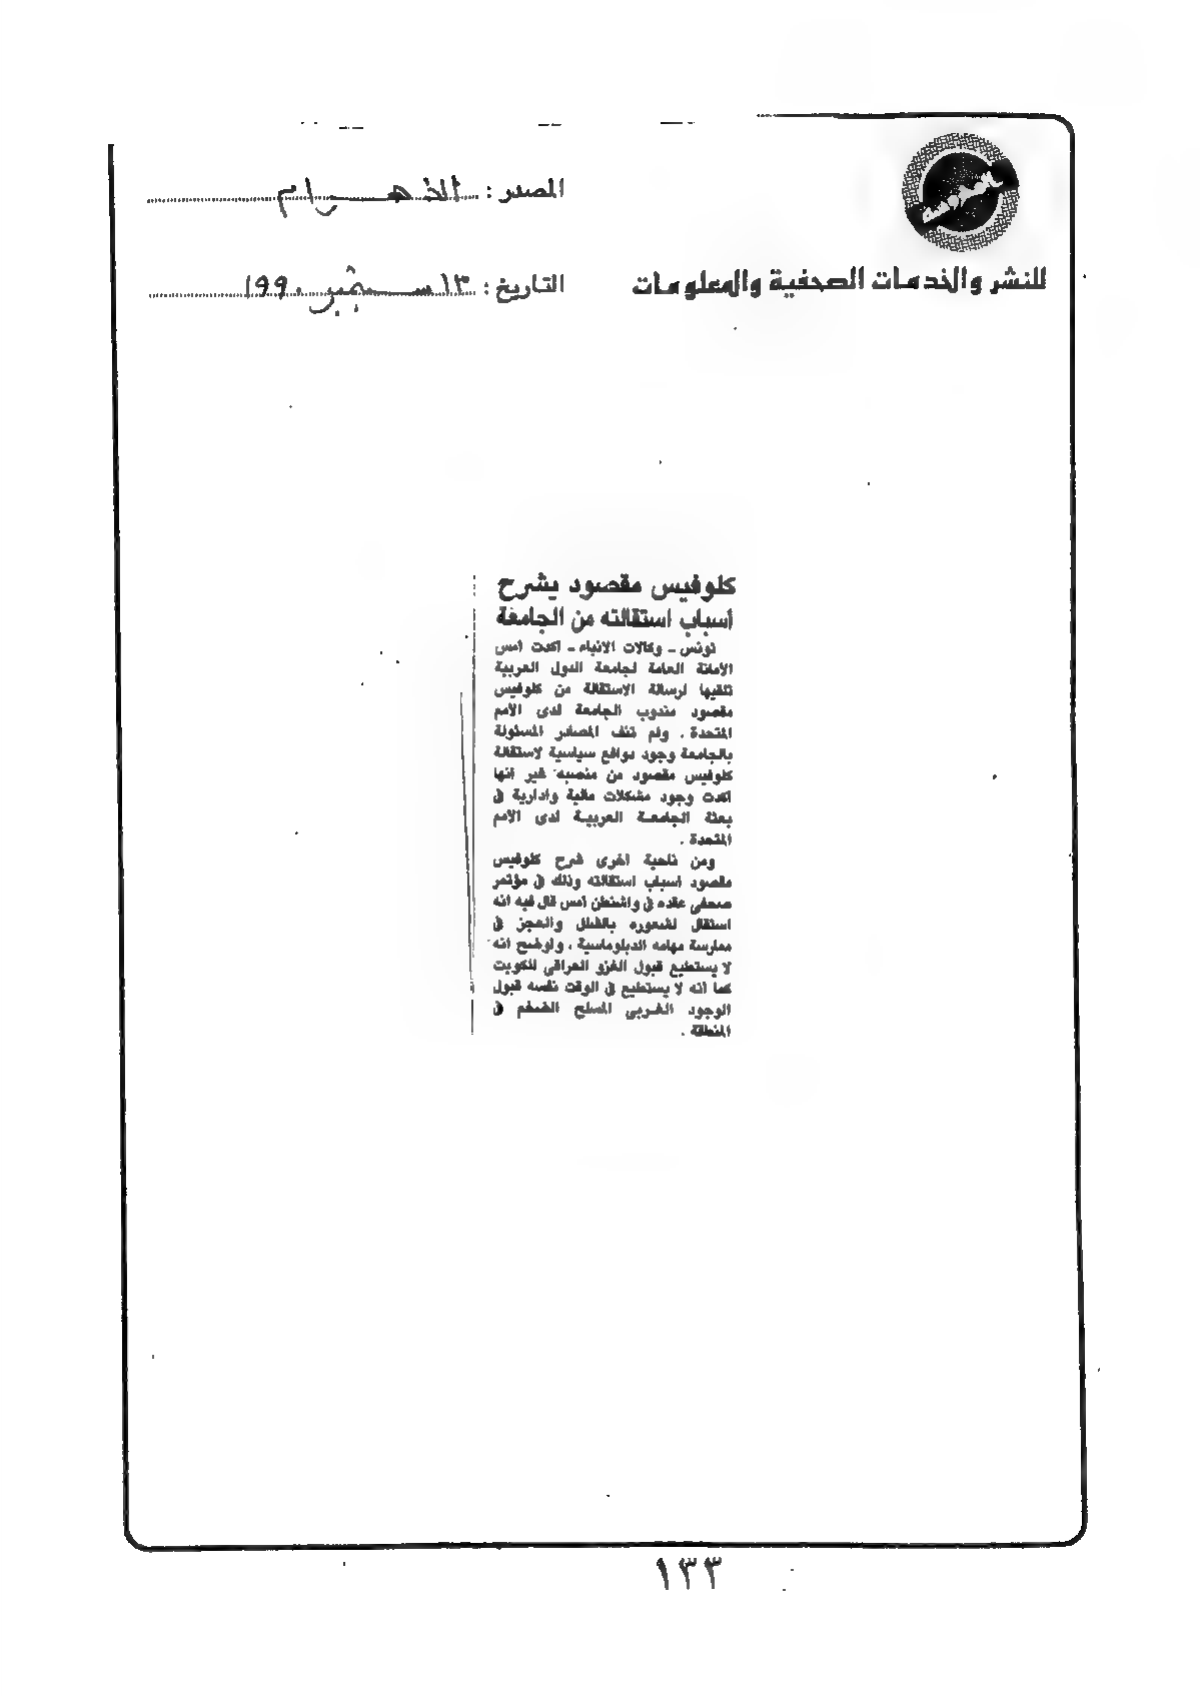 المصدر : الأهرام
التاريخ : ١٣ سبتمبر ١٩٩٠
للنشر والخدمات الصحفية والمعلومات
كلوفيس مقصود يشرح
أسباب استقالته من الجامعة
تونس - وكالات الانباء - اكدت أمس
الأمانة العامة لجامعة الدول العربية
تلقيها لرسالة الاستقالة من كلوفيس
مقصود مندوب الجامعة لدى الأمم
المتحدة . ولم تنف المصادر المسئولة
بالجامعة وجود دوافع سياسية لاستقالة
كلوفيس مقصود من منصبه غير انها
اكدت وجود مشكلات مالية وادارية في
بعثة الجامعة العربية لدى الأمم
المتحدة .
ومن ناحية اخرى شرح كلوفيس
مقصود اسباب استقالته وذلك في مؤتمر
صحفى عقده في واشنطن أمس قال فيه انه
استقال لشعوره بالفشل والعجز في
ممارسة مهامه الدبلوماسية ، واوضح انه
لا يستطيع قبول الغزو العراقى للكويت
كما انه لا يستطيع في الوقت نفسه قبول
الوجود الغربى المسلح الضخم في
المنطقة .
١٣٣